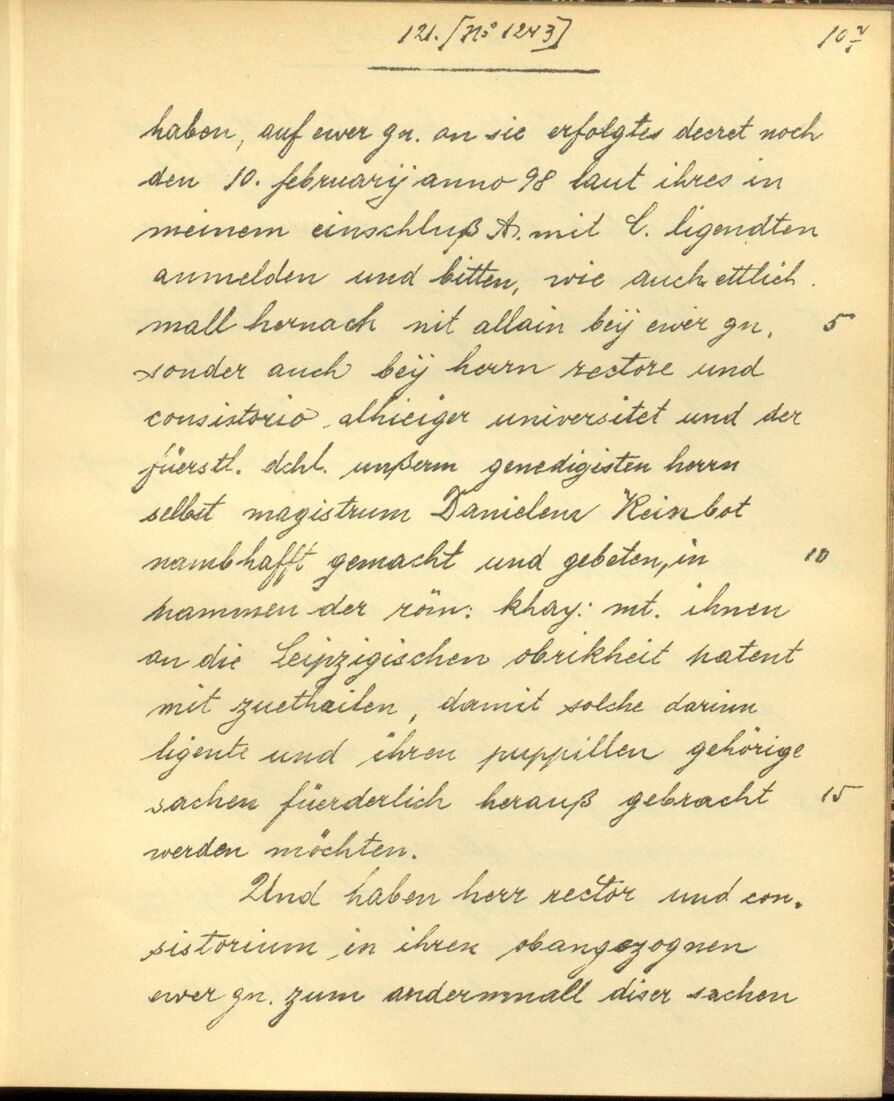 121. [No 1243]
10r
haben, auf ewer gn. an sie erfolgtes decret noch
den 10. februarij anno 98 laut ihres in
meinem einschluß A. mit C. ligendten
anmelden und bitten, wie auch ettlich
mall hernach nit allain beÿ ewer gn. 5
sonder auch beÿ herrn rectore und
consistorio alhieiger universitet und der
füerstl. dchl. unßerm genedigisten herrn
selbst magistrum Danielem Reinbot
nambhafft gemacht und gebeten, in 10
nammen der röm: khay: mt. ihnen
an die Leipzigischen obrikheit patent
mit zuethailen, damit solche darinn
ligente und ihren puppillen gehörige
sachen füerderlich herauß gebracht 15
werden möchten.
Und haben herr rector und con-
sistorium in ihren obangezognen
ewer gn. zum andernmall diser sachen